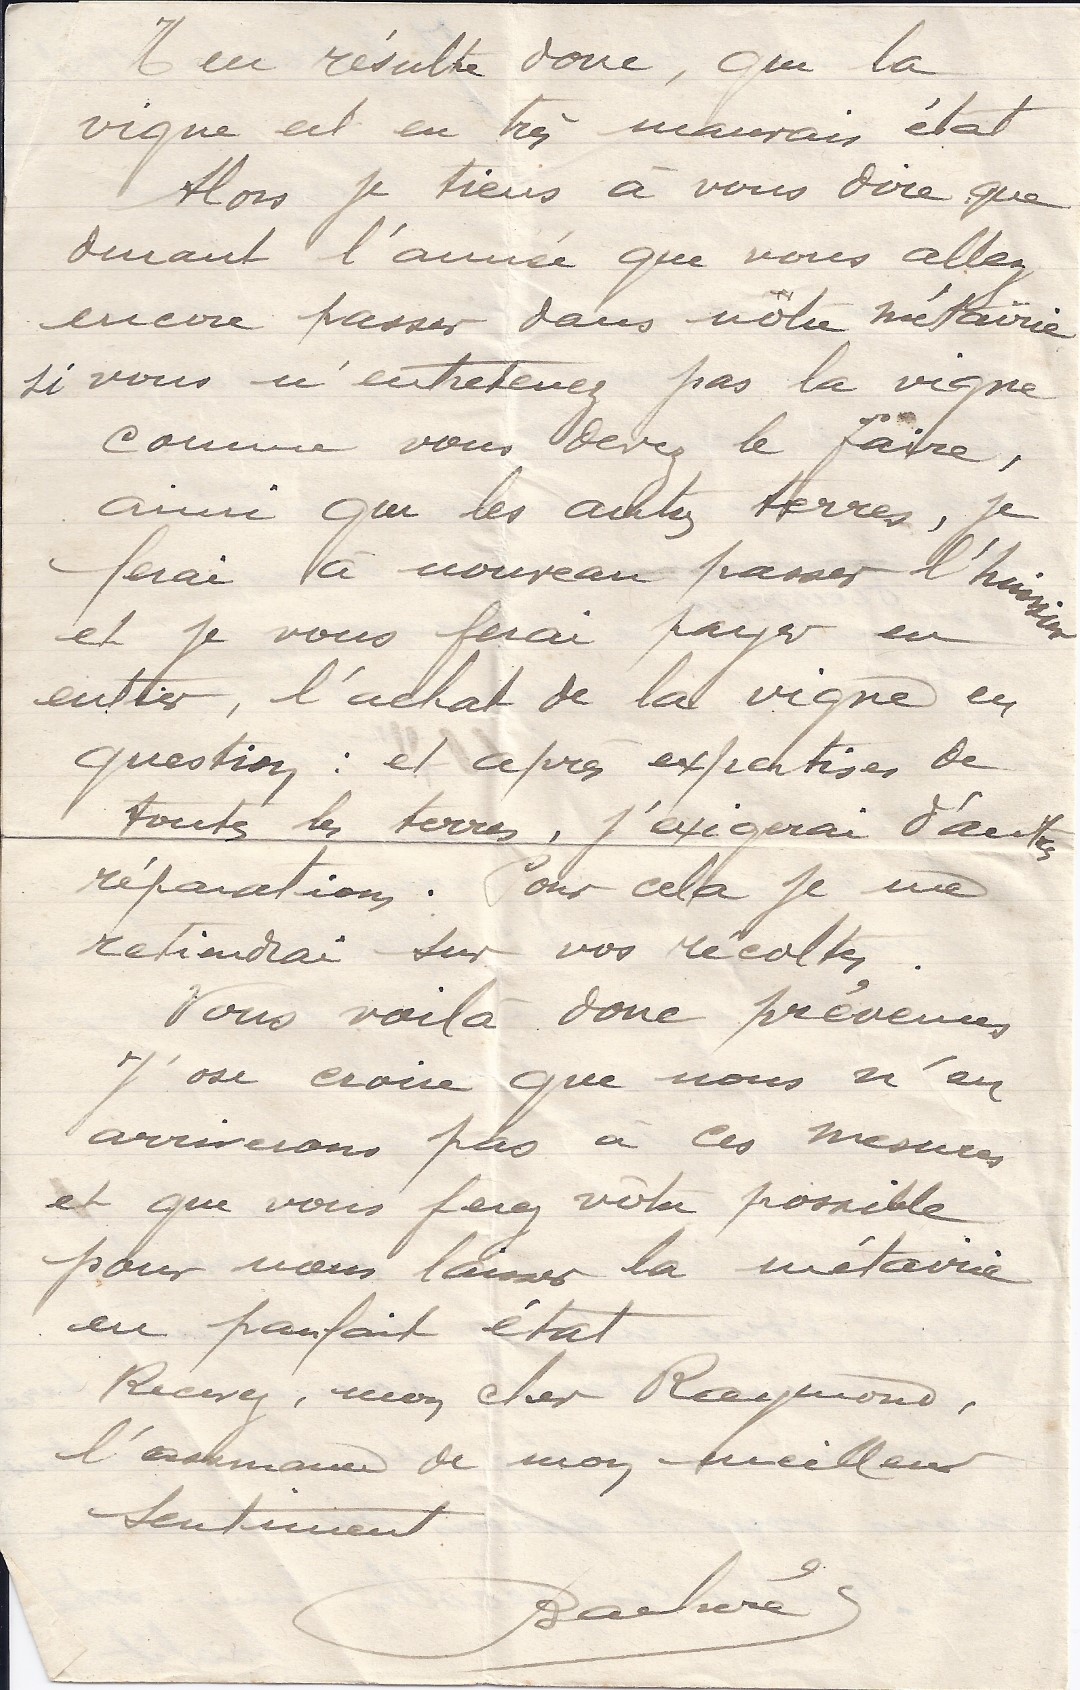 Il en résulte donc, que la
vigne est en très mauvais état
Alors je tiens à vous dire que
durant l'année que vous allez
encore passer dans nôtre métairie
si vous n'entretenez pas la vigne
comme vous devez le faire,
ainsi que les autres terres, je
ferai à nouveau passer l'huissier
et je vous ferai payer en
entier, l'achat de la vigne en
question : et après expertises de
toutes les terres, j'exigerai d'autres
réparations. Pour cela je me
retiendrai sur vos récoltes.
Vous voilà donc prévenus
J'ose croire que nous n'en
arriverons pas à ces mesures
et que vous ferez vôtre possible
pour nous laisser la métairie
en parfait état
Recevez, mon cher Raymond,
l'assurance de mon meilleur
sentiment